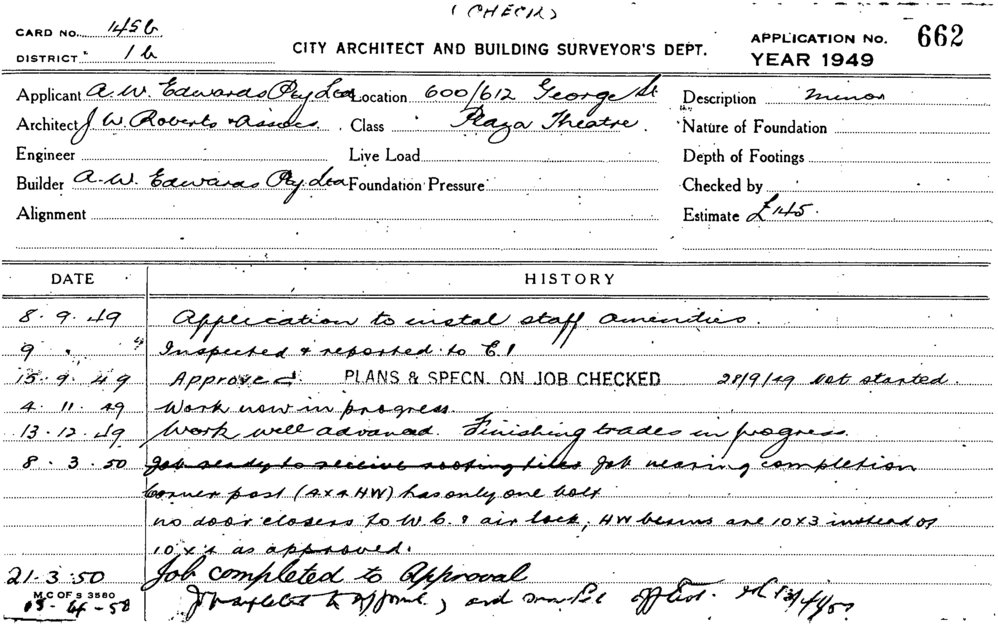 (CHECK)
CARD NO. 1456
DISTRICT 1b
CITY ARCHITECT AND BUILDING SURVEYOR'S DEPT.
APPLICATION No. 662
YEAR 1949
Applicant A.W. Edwards Pty Ltd Location 600/612 George St Description minor
Architect J.W. Roberts & Assocs. Class Plaza Theatre. Nature of Foundation
Engineer Live Load Depth of Footings
Builder A.W. Edwards Pty Ltd Foundation Pressure Checked by
Alignment Estimate £145.
DATE HISTORY
8. 9. 49 Application to instal staff amenities.
9 . " Inspected & reported to
15. 9. 49 Approved. PLANS & SPECN. ON JOB CHECKED 28/9/49 Not started.
4. 11. 49 Work now in progress.
13. 12. 49 Work well advanced. Finishing trades in progress.
8. 3. 50 Job ready to receive roofing tiles Job nearing completion
Corner post (4x4 HW) has only one bolt
no door closers to W.C. & air lock; HW beams are 10x3 instead of
10x4 as approved.
21. 3. 50 Job completed to Approval
M C OF S 3580